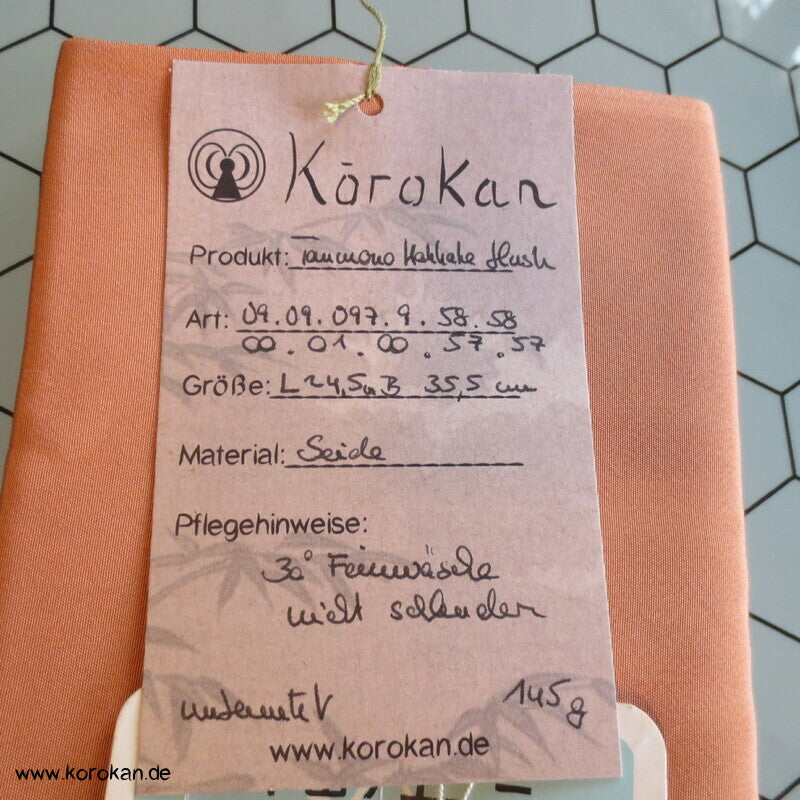 Kōrokan
Produkt: Tanmono Hakkake
Art: 09.09.097.9.58.58
00.01.00.57.57
Größe: L 24,5 B 35,5 cm
Material: Seide
Pflegehinweise:
30° Feinwäsche
nicht schleudern
145g
www.korokan.de
www.korokan.de